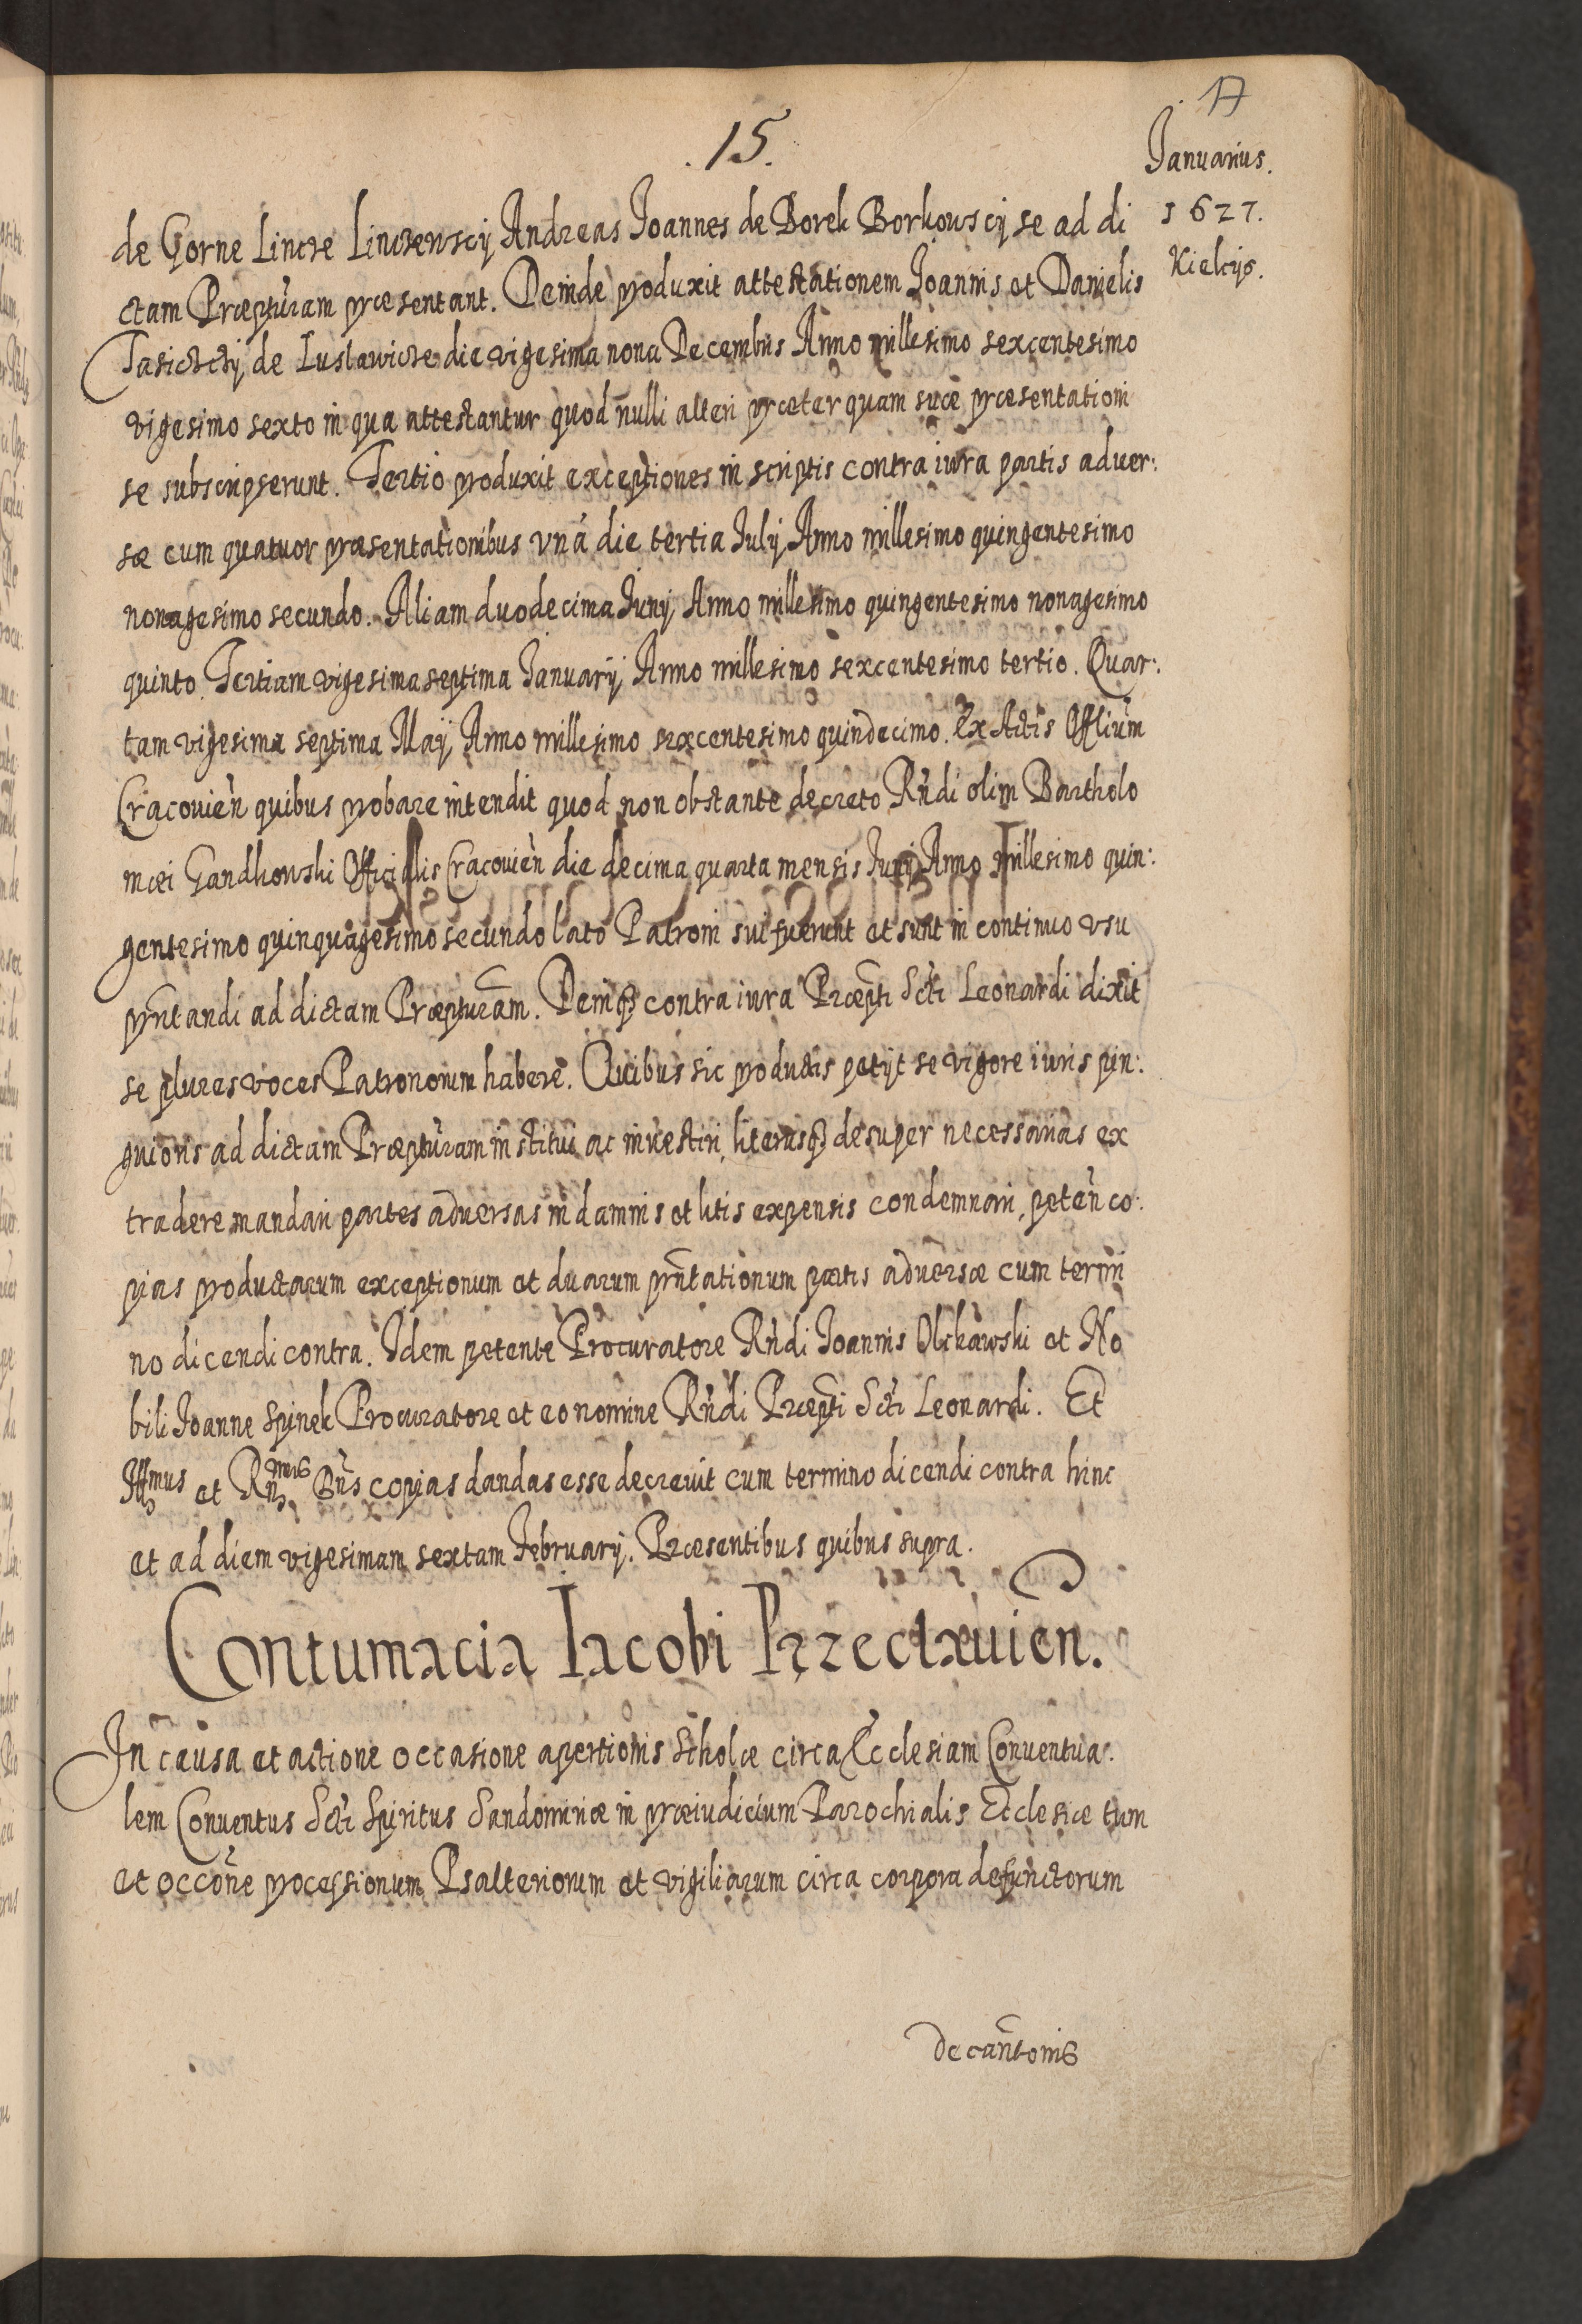 17
.15.
Januarius.
1627.
Kielcys.
de Gorne Lincze Linczewscÿ Andreas Joannes de Borek Borkowscÿ se ad di
ctam Præpturam præsentant. Deinde produxit attestationem Joannis et Danielis
de Luslawicze die vigesima nona Decembris Anno millesimo sexcentesimo
vigesimo sexto in qua attestantur quod nulli alteri præter quam suæ præsentationi
se subscripserunt. Tertio produxit exceptiones in scriptis contra iura partis aduer:
sæ cum quatuor præsentationibus vná die tertia Julÿ Anno millesimo quingentesimo
nonagesimo secundo. Aliam duodecima Junÿ Anno millesimo quingentesimo nonagesimo
quinto. Tertiam vigesima septima Januarÿ Anno millesimo sexcentesimo tertio. Quar:
tam vigesima septima Maÿ Anno millesimo sexcentesimo quindecimo. Ex Actis Offlium
Cracouien quibus probare intendit quod non obstante decreto Rndi olim Bartholo
mæi Gandkowski Officialis Cracouien die decima quarta mensis Junÿ Anno Millesimo quin:
gentesimo quinquagesimo secundo lato Patroni sui fuerunt et sunt in continuo vsu
prntandi ad dictam Præpturam. Deinq contra iura Præpti Scti Leonardi dixit
se plures voces Patronorum habere. Quibus sic productis petÿt se vigore iuris pin:
guioris ad dictam Præpturam institui ac inuestiri, literasq desuper necessarias ex
tradere mandari partes aduersas in damnis et litis expensis condemnari, peten co:
pias productarum exceptionum et duarum prntationum partis aduersæ cum termi
no dicendi contra. Idem petente Procuratore Rndi Joannis Olckawski et No
bili Joanne Spinek Procuratore et eo nomine Rndi Præpti Scti Leonardi. Et
Illmus et Rnmus Dns copias dandas esse decreuit cum termino dicendi contra hinc
et ad diem vigesimam sextam Februarÿ. Præsentibus quibus supra.
Contumacia Jacobi Przeclauien.
In causa et actione occasione apertionis Scholæ circa Ecclesiam Conuentua:
lem Conuentus Scti Spiritus Sandomiriæ in præiudicium Parochialis Ecclesiæ tum
et occone processionum Psalteriorum et vigiliarum circa corpora defunctorum
decantonis